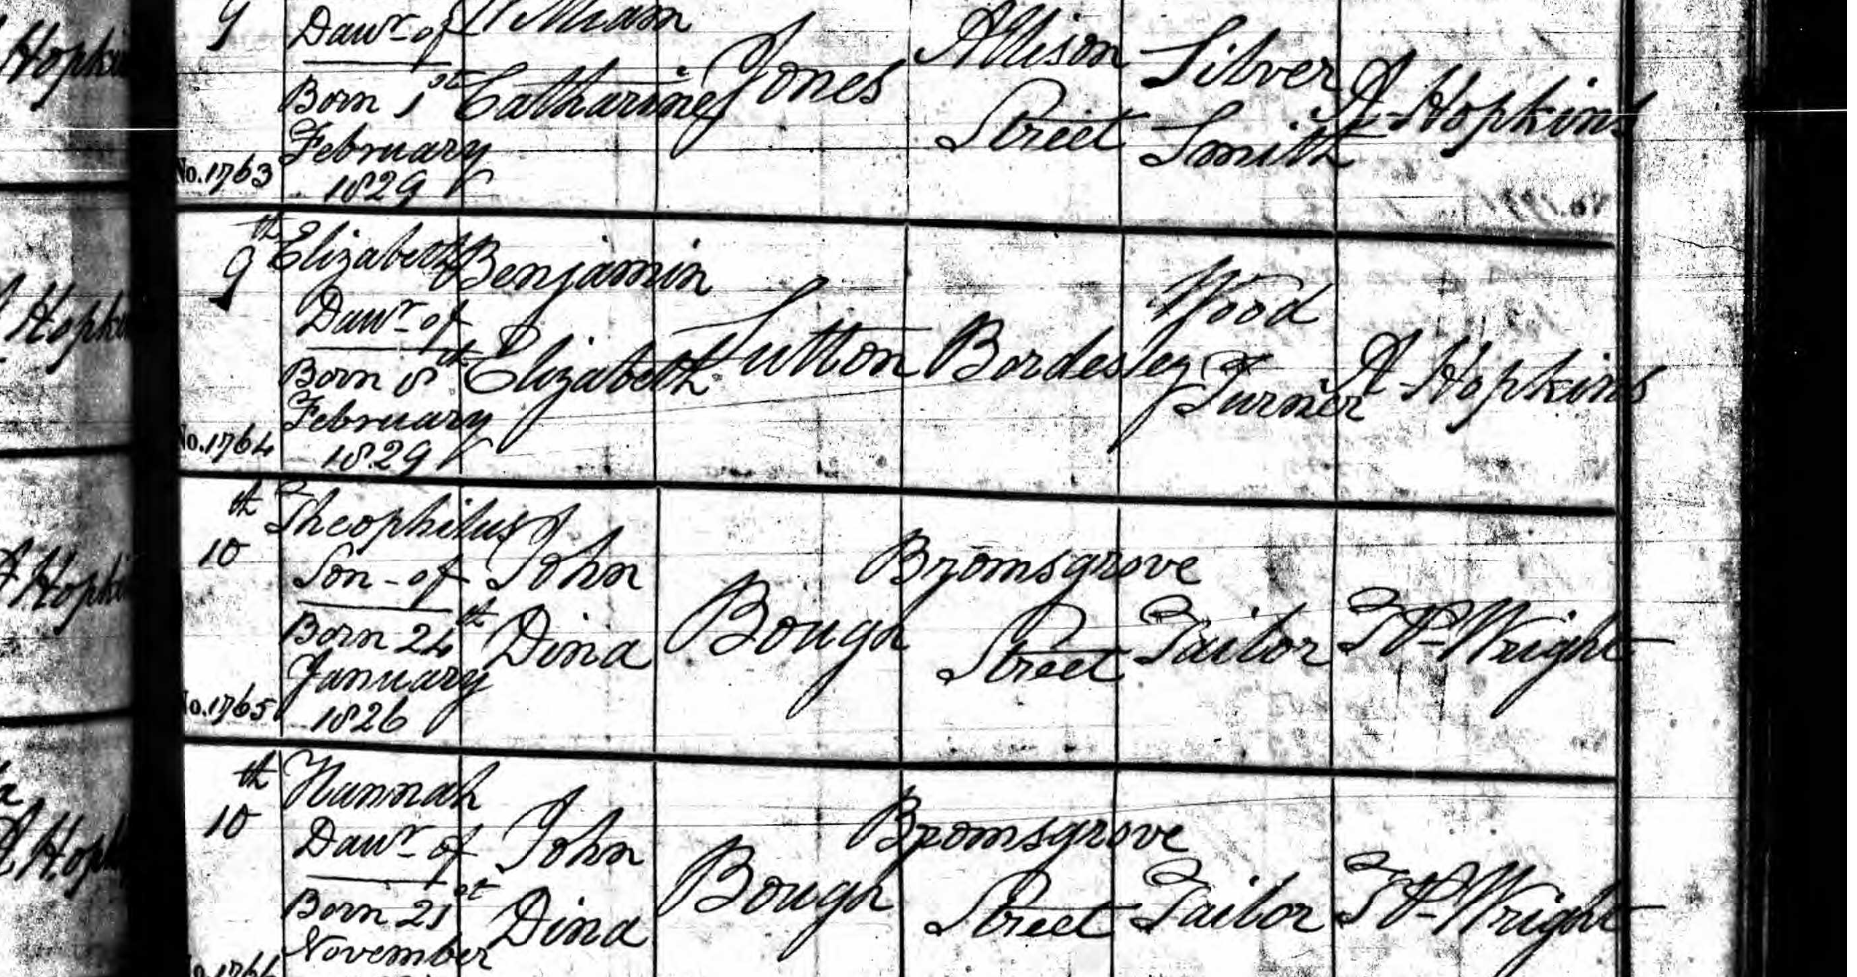 Hopkin
9
Dawr of
Born 1st
February
1829
No. 1763
William
Catharine
Jones
Allison
Street
Silver
Smith
A Hopkins
Hopkin
9th
Elizabeth
Dawr of
Born 8th
February
1829
No. 1764
Benjamin
Elizabeth
Sutton
Bordesley
Wood
Turner
A Hopkins
A Hopkin
10th
Theophilus
Son of
Born 24th
January
1826
No. 1765
John
Dina
Bough
Bromsgrove
Street
Tailor
T P Wright
A Hopk
10th
Hannah
Dawr of
Born 21st
November
No. 1766
John
Dina
Bough
Bromsgrove
Street
Tailor
T P Wright